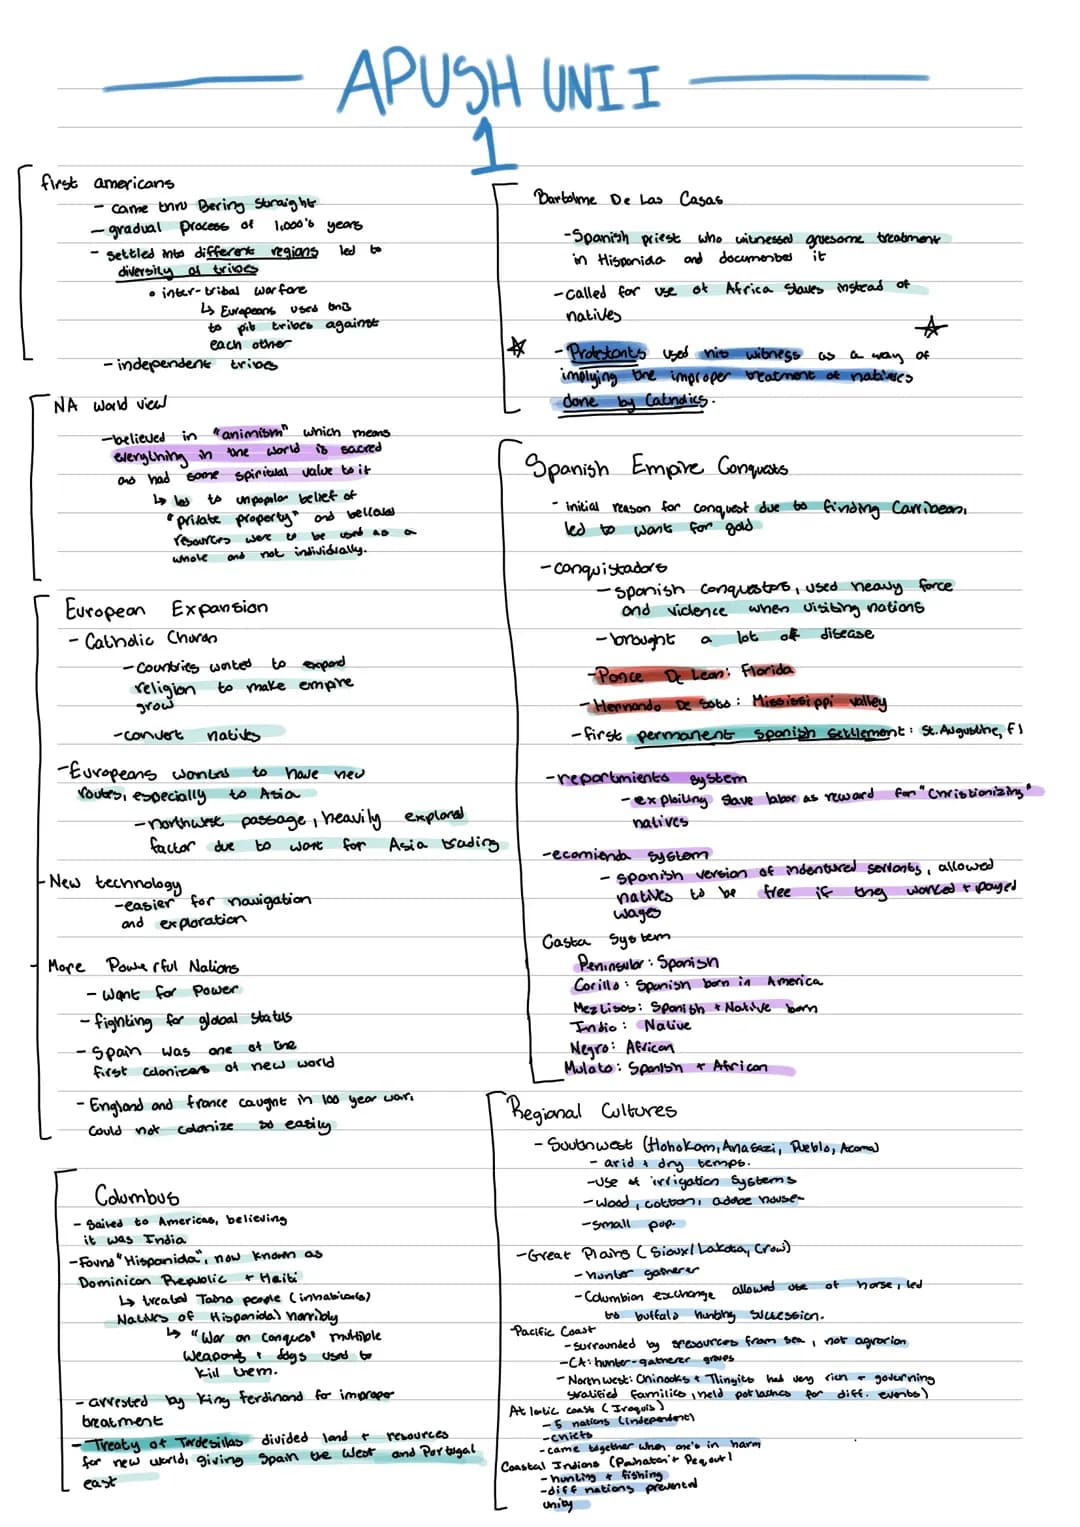 APUSH UNIT
1
first americans
- came thru Bering Straight
- gradual process of 1,000's years
- settled into different regions led to
diversity of tribes
• inter-tribal warfare
↳ Europeans used this
to pit tribes against
each other
- independent tribes
NA world view
- believed in "animism" which means
everything in the world is sacred
and had some spiritual value to it
↳ led to unpopular belief of
"private property" and believed
resources were to be used as a
whole and not individually.
European Expansion
- Catholic Church
- Countries wanted to expand
religion to make empire
grow
- convert natives
- Europeans wanted to have new
routes, especially to Asia
- northwest passage, heavily explored
factor due to want for Asia trading
- New technology
- easier for navigation
and exploration
- More Powerful Nations
- Want for Power
- fighting for global status
- Spain was one of the
first colonizers of new world
- England and france caught in 100 year war,
could not colonize so easily
Columbus
- Sailed to Americas, believing
it was India
- Found "Hispanida", now known as
Dominican Republic + Haiti
↳ treated Taino people (inhabitants)
Natives of Hispanida) horribly
↳ "War on Conquest" multiple
weapons & dogs used to
kill them.
- arrested by King ferdinand for improper
treatment
- Treaty of Tordesillas divided land + resources
for new world, giving Spain the West and Portugal
east
Bartolme De Las Casas
- Spanish priest who witnessed gruesome treatment
in Hispanida and documented it
- called for use of Africa slaves instead of
natives
- Protestants used his witness as a way of
implying the improper treatment of natives
done by Catholics.
Spanish Empire Conquests
- initial reason for conquest due to finding Carribean,
led to want for gold
- conquistadors
- spanish conquestors, used heavy force
and violence when visiting nations
- brought a lot of disease
- Ponce De Leon: Florida
- Hernando De Soto: Mississippi valley
- first permanent spanish settlement: St. Augustine, Fl
- repartmiento system
- exploiting slave labor as reward for "Christionizing"
natives
- ecomienda system
- spanish version of indentured servants, allowed
natives to be free if they worked + payed
wages
Casta System
Peninsular: Spanish
Corillo: Spanish born in America
Meztisos: Spanish + Native born
Indio: Native
Negro: African
Mulato: Spanish + African
Regional Cultures
- Southwest (Hohokam, Anasazi, Pueblo, Acoma)
- arid & dry temps.
- use of irrigation systems
- wood, cotton, adobe house-
- small pop.
- Great Plains (Sioux/Lakota, Crow)
- hunter gatherer
- Columbian exchange allowed use of horse, led
to buffalo hunting succession.
- Pacific Coast
- surrounded by sresources from sea, not agrarian
- CA: hunter-gatherer groups
- Northwest: Chinooks & Tlingits had very rich + governing
stratified families, held potlaches for diff. events)
Atlatic coast (Iroquis)
- 5 nations (independent)
- chiefs
- came together when one's in harm
Coastal Indians (Pwhatan + Pequot)
- hunting + fishing
- diff nations prevented
unity